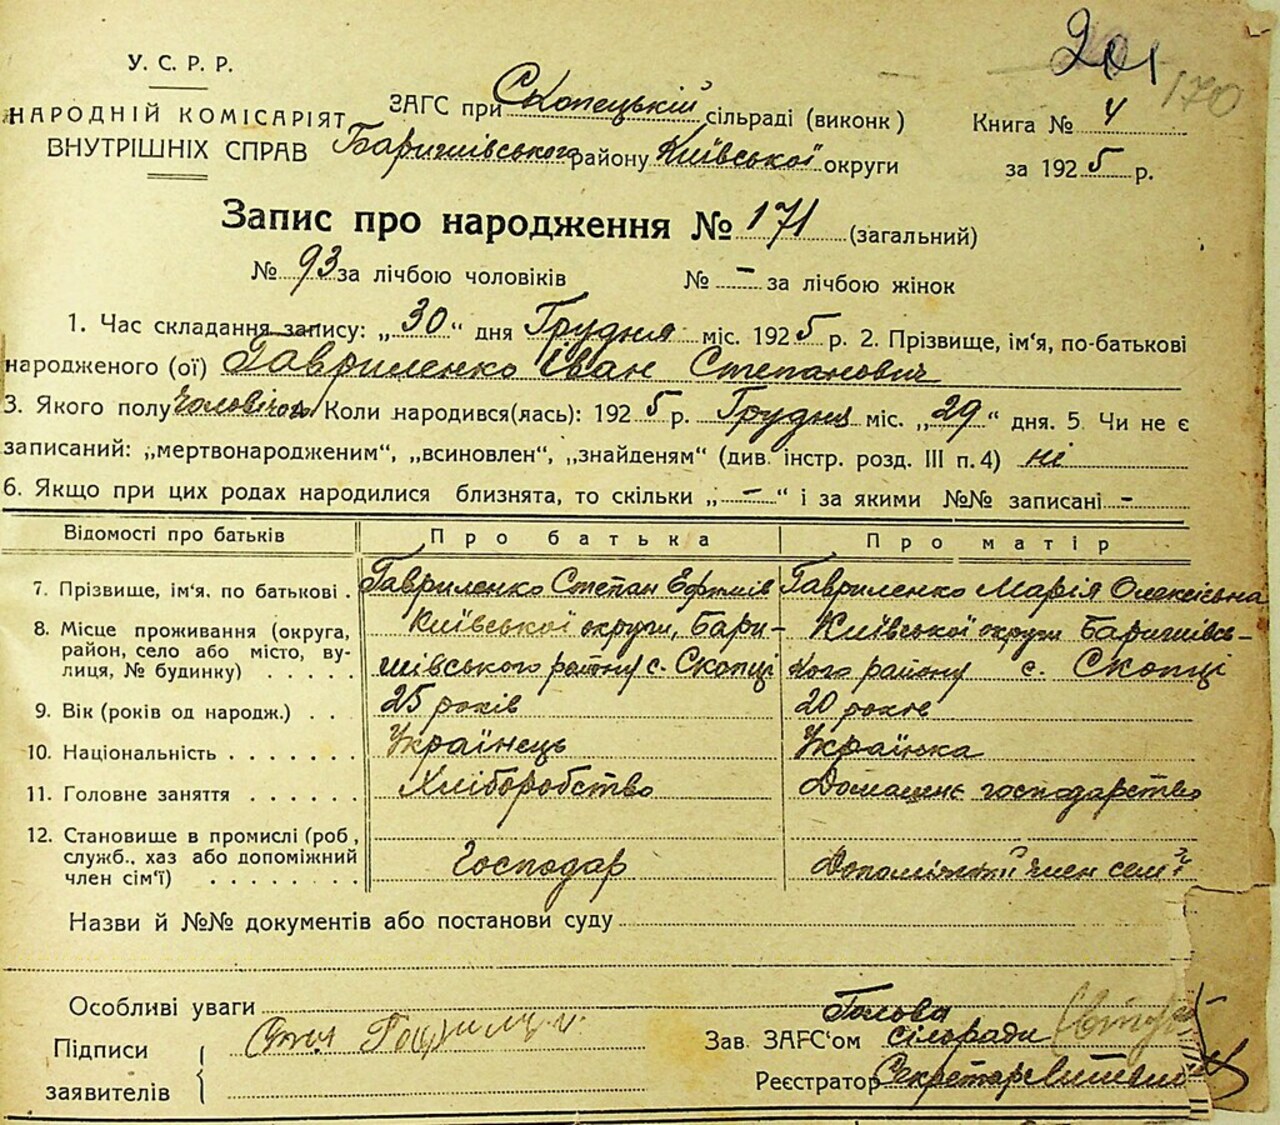 201
170
У. С. Р. Р.
НАРОДНІЙ КОМІСАРІЯТ
ВНУТРІШНІХ СПРАВ
ЗАГС при Скопецькій сільраді (виконк)
Баришівського району Київської округи
Книга № 4
за 1925 р.
Запис про народження № 171 (загальний)
№ 93 за лічбою чоловіків № – за лічбою жінок
1. Час складання запису: „30“ дня Грудня міс. 1925 р. 2. Прізвище, ім'я, по-батькові
народженого (ої) Гавриленко Іван Степанович
3. Якого полу Чоловічого Коли народився(лась): 1925 р. Грудня міс. „29“ дня. 5. Чи не є
записаний: „мертвонародженим“, „всиновлен“, „знайденям“ (див. інстр. розд. III п. 4) ні
6. Якщо при цих родах народилися близнята, то скільки „–“ і за якими №№ записані –
Відомості про батьків Про батька Про матір
7. Прізвище, ім'я. по батькові . Гавриленко Степан Ефтмів Гавриленко Марія Олексієвна
8. Місце проживання (округа, Київської округи, Бари- Київської округи Баришівсь-
район, село або місто, ву- шівського району с. Скопці кого району с. Скопці
лиця, № будинку) . . . . .
9. Вік (років од народж.) . . . 25 років 20 років
10. Національність . . . . . . . Українець Українка
11. Головне заняття . . . . . . Хліборобство Домашнє господарство
12. Становище в промислі (роб,
служб., хаз або допоміжний Господар Допоміжний член семії
член сім'ї) . . . . . . . .
Назви й №№ документів або постанови суду
Особливі уваги
Підписи
заявителів
Голова
Зав. ЗАГС'ом сілоради
Реєстратор Секретар